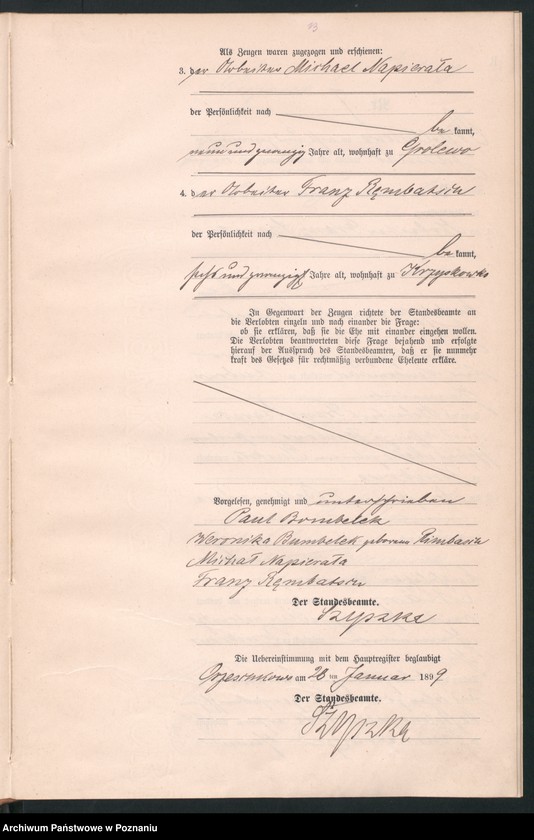 Als Zeugen waren zugezogen und erschienen:
3. der Arbeiter Michael Napierała
der Persönlichkeit nach
be kannt,
neun und zwanzig Jahre alt, wohnhaft zu Grolewo
4. der Arbeiter Franz Rembatsin
der Persönlichkeit nach
be kannt,
sechs und zwanzig Jahre alt, wohnhaft zu
In Gegenwart der Zeugen richtete der Standesbeamte an
die Verlobten einzeln und nach einander die Frage:
ob sie erklären, daß sie die Ehe mit einander eingehen wollen.
Die Verlobten beantworteten diese Frage bejahend und erfolgte
hierauf der Ausspruch des Standesbeamten, daß er sie nunmehr
kraft des Gesetzes für rechtmäßig verbundene Eheleute erkläre.
Vorgelesen, genehmigt und unterschrieben
Paul Bombelek
Weronika Bumbelek geborene
Michał Napierała
Franz
Der Standesbeamte.
Die Uebereinstimmung mit dem Hauptregister beglaubigt
am 28 ten Januar 1899
Der Standesbeamte.
Archiwum Państwowe w Poznaniu